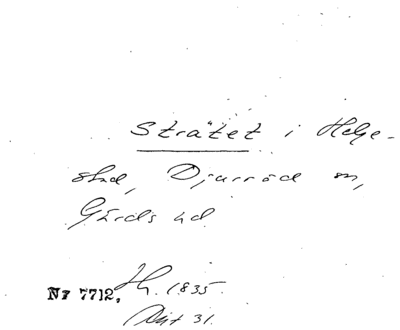 Strätet i Helge-
stad, Djurröd sn,
Gärds hd.
Nr 7712, Hh. 1835
Akt 31.